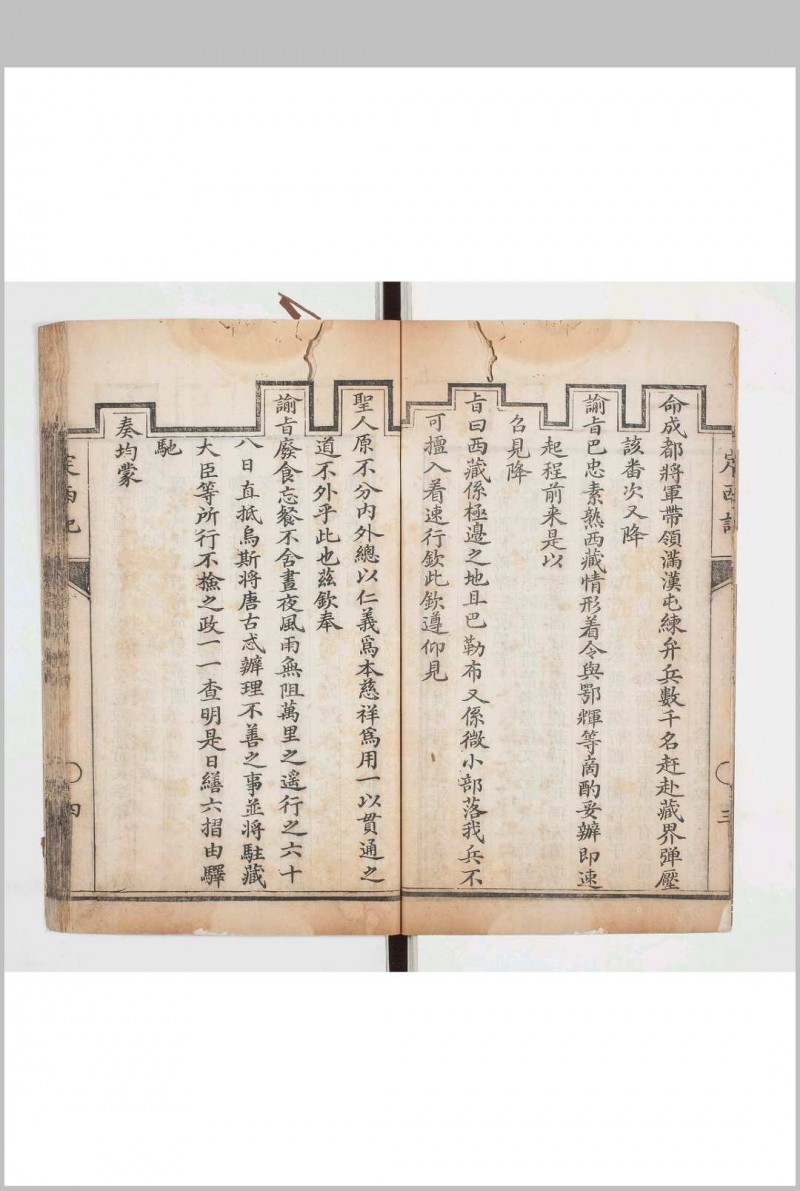 命成都將軍帶領滿漢屯練弁兵數千名赶赴藏界弹壓
該畨次又降
諭㫖巴忠素熟西藏情形着令與鄂輝等啇酌妥辦即速
起程前来是以
召見降
㫖曰西藏係極邊之地且巴勒布又係微小部落我兵不
可擅入着速行欽此欽遵仰見
聖人原不分内外總以仁義爲本慈祥爲用一以貫通之
道不外乎此也茲欽奉
諭㫖廢食忘餐不舍晝夜風雨無阻萬里之遥行之六十
八日直抵烏斯將唐古忒辦理不善之事並將駐藏
大臣等所行不撿之政一一查明是日繕六摺由驛
馳
奏均蒙
定西記
三
四